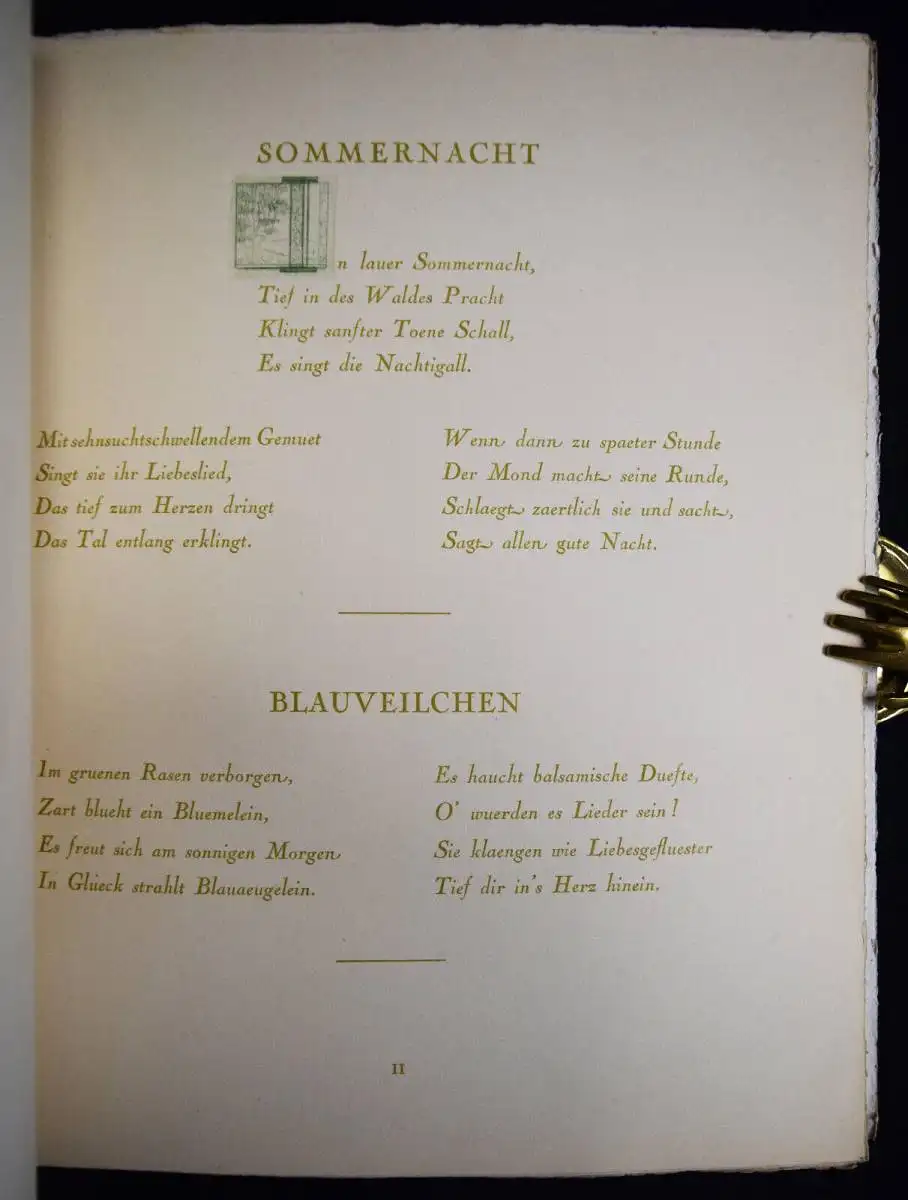 SOMMERNACHT
In lauer Sommernacht,
Tief in des Waldes Pracht
Klingt sanfter Toene Schall,
Es singt die Nachtigall.
Mit sehnsuchtschwellendem Gemuet
Singt sie ihr Liebeslied,
Das tief zum Herzen dringt
Das Tal entlang erklingt.
Wenn dann zu spaeter Stunde
Der Mond macht seine Runde,
Schlaegt zaertlich sie und sacht,
Sagt allen gute Nacht.
BLAUVEILCHEN
Im gruenen Rasen verborgen,
Zart blueht ein Bluemelein,
Es freut sich am sonnigen Morgen
In Glueck strahlt Blauaeugelein.
Es haucht balsamische Duefte,
O' wuerden es Lieder sein!
Sie klaengen wie Liebesgefluester
Tief dir in's Herz hinein.
II